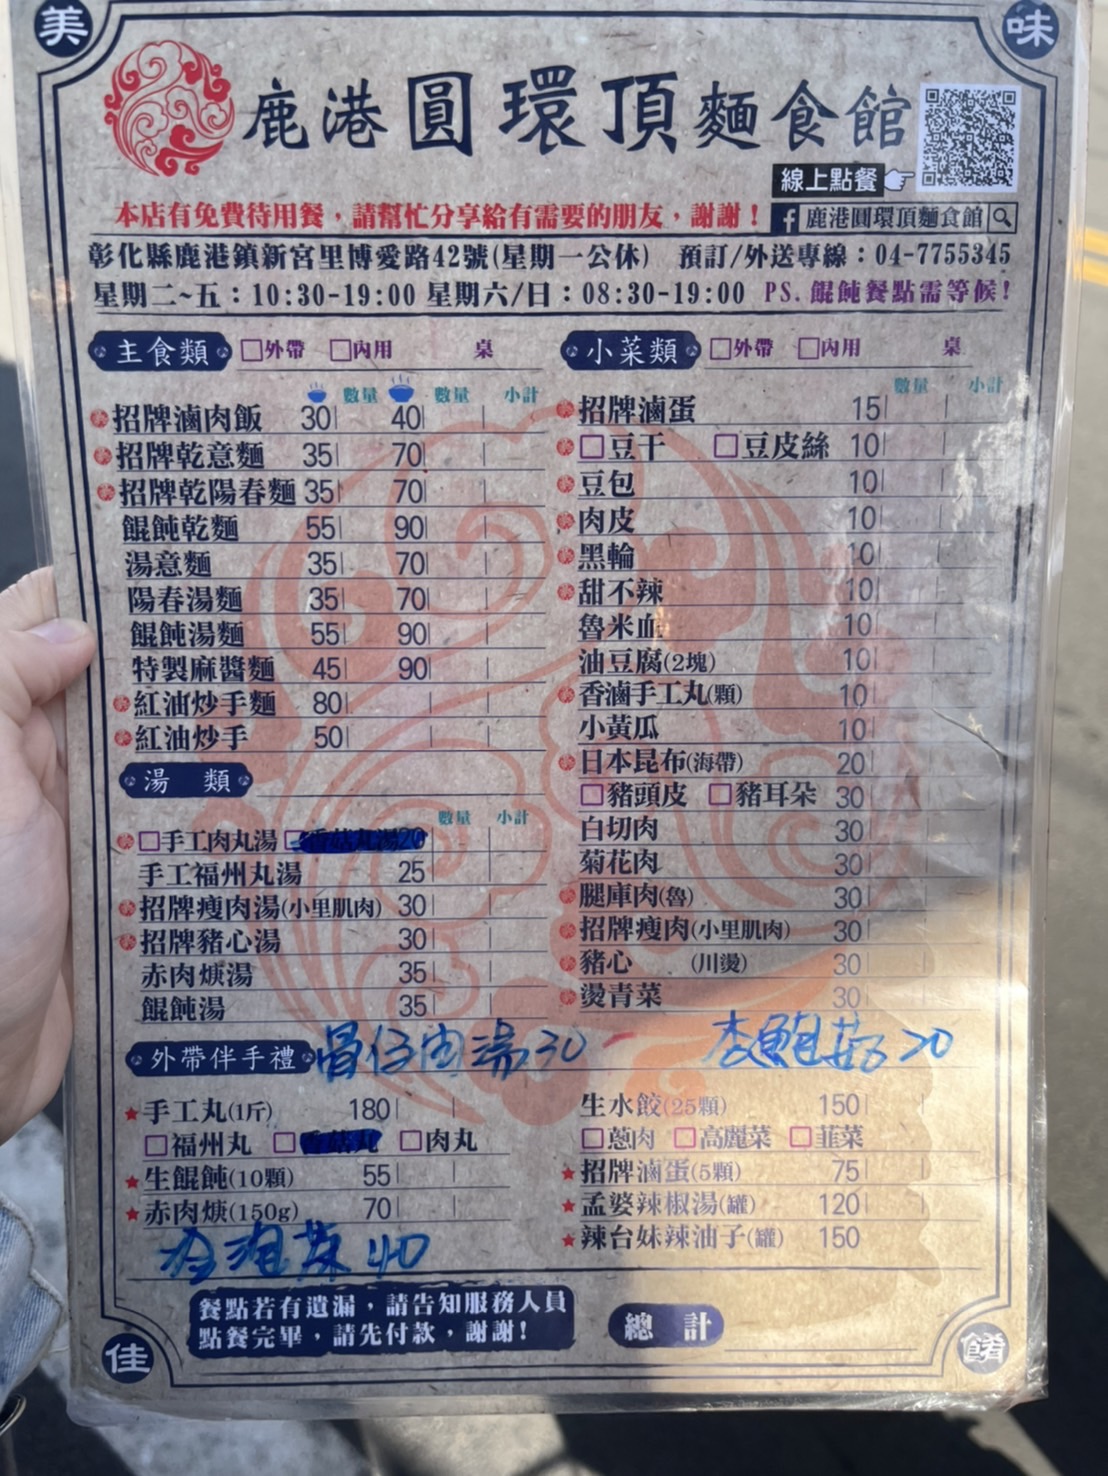 美
味
鹿港圓環頂麵食館
線上點餐
本店有免費待用餐，請幫忙分享給有需要的朋友，謝謝！
f 鹿港圓環頂麵食館
彰化縣鹿港鎮新宮里博愛路42號(星期一公休) 預訂/外送專線：04-7755345
星期二~五：10:30-19:00 星期六/日：08:30-19:00 PS.餛飩餐點需等候！
主食類 □外帶 □內用 桌
數量 數量 小計
招牌滷肉飯 30 40
招牌乾意麵 35 70
招牌乾陽春麵 35 70
餛飩乾麵 55 90
湯意麵 35 70
陽春湯麵 35 70
餛飩湯麵 55 90
特製麻醬麵 45 90
紅油炒手麵 80
紅油炒手 50
湯 類
數量 小計
□手工肉丸湯 □香菇丸湯20
手工福州丸湯 25
招牌瘦肉湯(小里肌肉) 30
招牌豬心湯 30
赤肉焿湯 35
餛飩湯 35
小菜類 □外帶 □內用 桌
數量 小計
招牌滷蛋 15
□豆干 □豆皮絲 10
豆包 10
肉皮 10
黑輪 10
甜不辣 10
魯米血 10
油豆腐(2塊) 10
香滷手工丸(顆) 10
小黃瓜 10
日本昆布(海帶) 20
□豬頭皮 □豬耳朵 30
白切肉 30
菊花肉 30
腿庫肉(魯) 30
招牌瘦肉(小里肌肉) 30
豬心 (川燙) 30
燙青菜 30
外帶伴手禮
骨仔肉湯30
杏鮑菇20
★手工丸(1斤) 180
□福州丸 □香菇丸 □肉丸
★生餛飩(10顆) 55
★赤肉焿(150g) 70
泡菜40
生水餃(25顆) 150
□蔥肉 □高麗菜 □韮菜
★招牌滷蛋(5顆) 75
★孟婆辣椒湯(罐) 120
★辣台妹辣油子(罐) 150
餐點若有遺漏，請告知服務人員
點餐完畢，請先付款，謝謝！
總 計
佳
餚